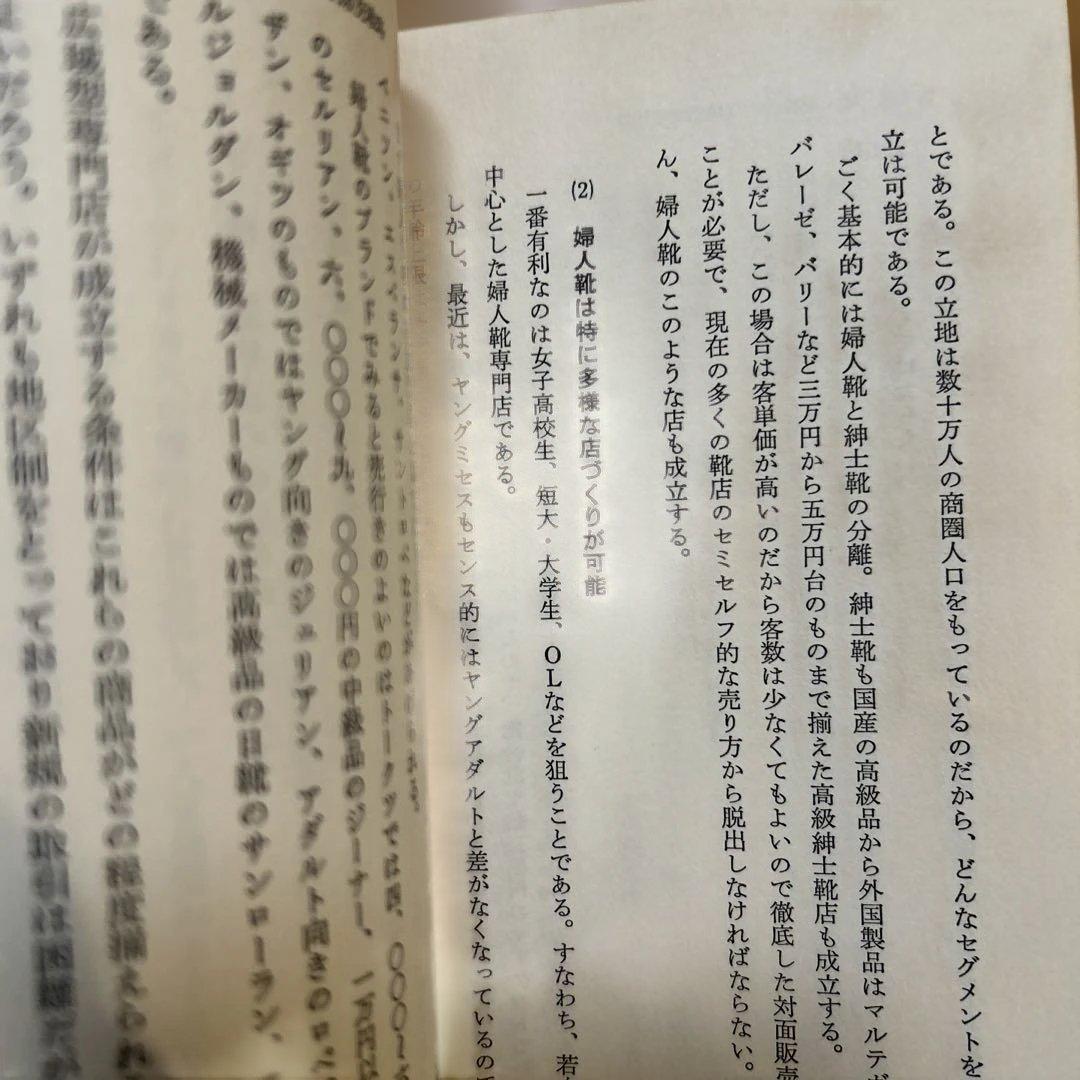 とである。この立地は数十万人の商圏人口をもっているのだから、どんなセグメントを
立は可能である。
ごく基本的には婦人靴と紳士靴の分離。紳士靴も国産の高級品から外国製品はマルテ
バレーゼ、バリーなど三万円から五万円台のものまで揃えた高級紳士靴店も成立する。
ただし、この場合は客単価が高いのだから客数は少なくてもよいので徹底した対面販売
ことが必要で、現在の多くの靴店のセミセルフ的な売り方から脱出しなければならない。
ん、婦人靴のこのような店も成立する。
(2) 婦人靴は特に多様な店づくりが可能
一番有利なのは女子高校生、短大・大学生、OLなどを狙うことである。すなわち、若
中心とした婦人靴専門店である。
しかし、最近は、ヤングミセスもセンス的にはヤングアダルトと差がなくなっているの
婦人靴のブランドでみると売行きのよいのはトークツでは四、〇〇〇〜
のセルリアン、六、〇〇〇〜九、〇〇〇円の中級品のジーナー、一万円
サン、オギツのものではヤング向きのジュリアン、アダルト向きの
ルジョルダン、機械メーカーものでは高級品の日靴のサンローラン、
である。
広域型専門店が成立する条件はこれらの商品がどの程度揃えられ
よいだろう。いずれも地区制をとっており新規の取引は困難だが